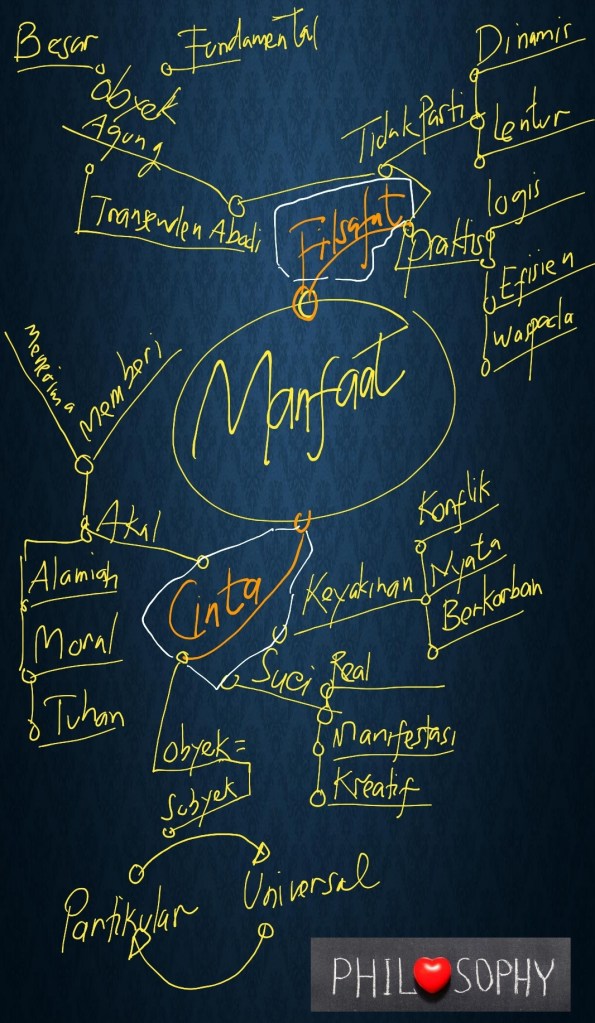 Besar
Fundamental
Obyek
Agung
Transenden Abadi
Tidak Pasti
Dinamis
Lentur
Filsafat
Praktis
logis
Efisien
waspada
Manfaat
Menerima
Memberi
Akal
Alamiah
Moral
Tuhan
Cinta
Keyakinan
Konflik
Nyata
Berkorban
Suci
Real
Manifestasi
Kreatif
Obyek =
Subyek
Partikular
Universal
PHIL❤SOPHY